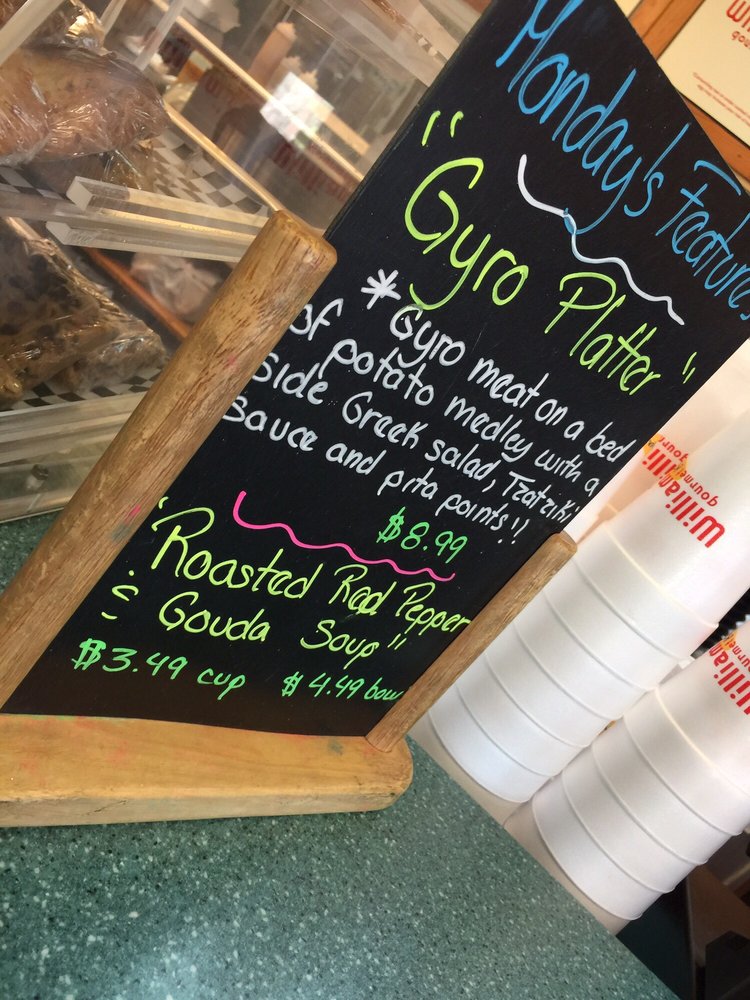 Monday's Features
"Gyro Platter"
*Gyro meat on a bed
of potato medley with a
side Greek salad, Tzatziki
sauce and pita points!!
$8.99
"Roasted Red Pepper
& Gouda Soup"
$3.49 cup $4.49 bowl